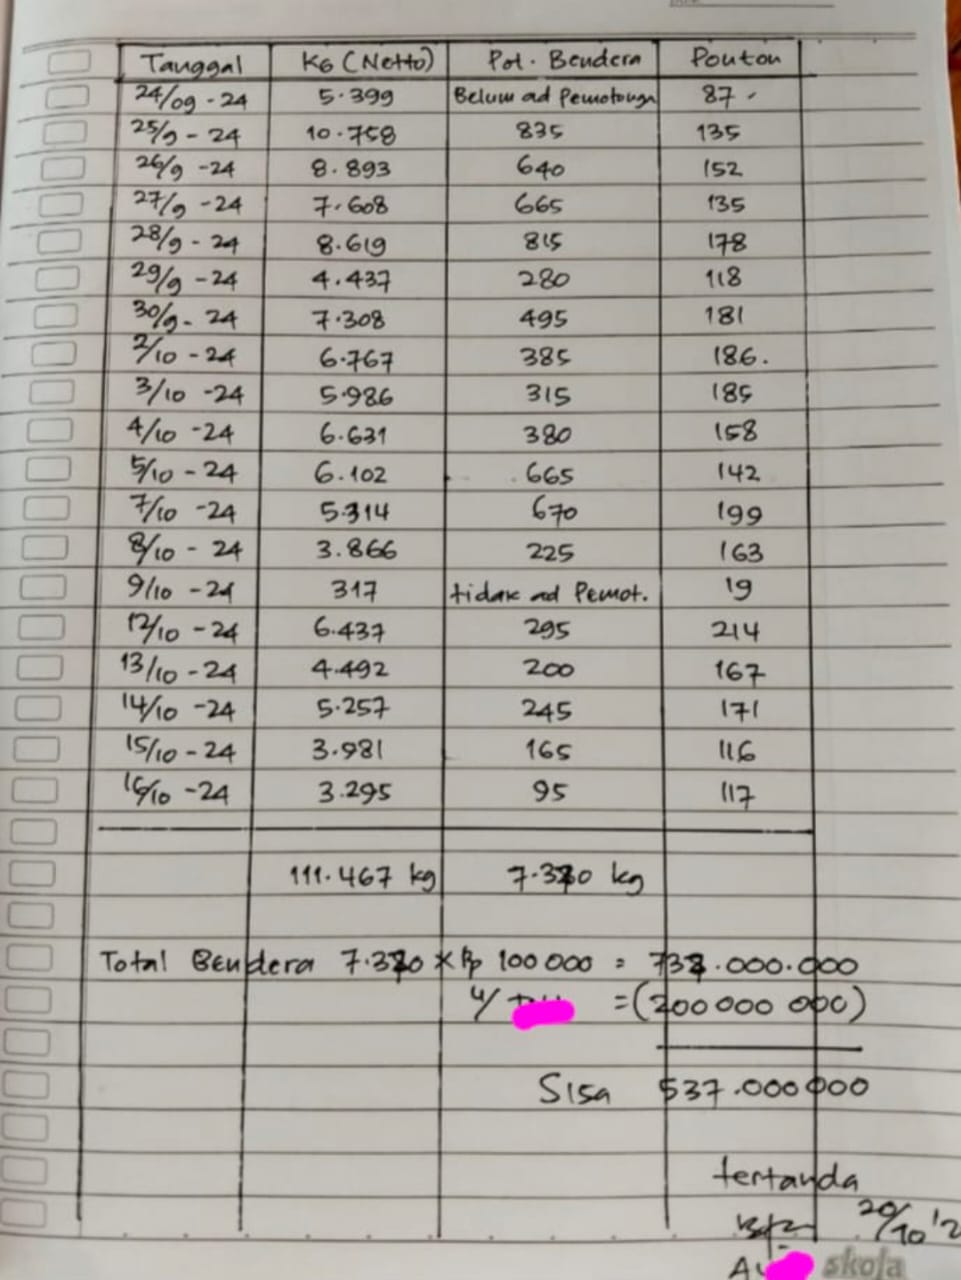 Tanggal KG (Netto) Pot. Bendera Ponton
24/09-24 5.399 Belum ad Pemotongn 87
25/9-24 10.758 835 135
26/9-24 8.893 640 152
27/9-24 7.608 665 135
28/9-24 8.619 815 178
29/9-24 4.437 280 118
30/9-24 7.308 495 181
2/10-24 6.767 385 186.
3/10-24 5.986 315 185
4/10-24 6.631 380 158
5/10-24 6.102 665 142
7/10-24 5.314 670 199
8/10-24 3.866 225 163
9/10-24 317 tidak ad Pemot. 19
12/10-24 6.437 295 214
13/10-24 4.492 200 167
14/10-24 5.257 245 171
15/10-24 3.981 165 116
16/10-24 3.295 95 117
111.467 kg 7.370 kg
Total Bendera 7.370 x Rp 100 000 = 737.000.000
u/ =(200 000 000)
Sisa 537.000 000
tertanda
20/10 '2
skola